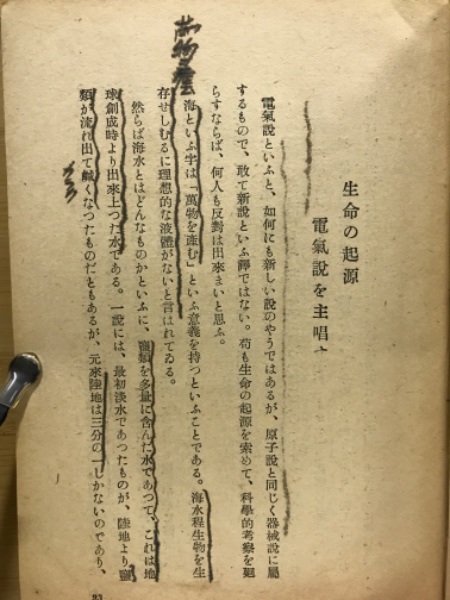 生命の起源
電氣說を主唱す
電氣說といふと、如何にも新しい說のやうではあるが、原子說と同じく器械說に屬
するもので、敢て新說といふ譯ではない。苟も生命の起源を索めて、科學的考察を廻
らすならば、何人も反對は出來まいと思ふ。
海といふ字は「萬物を產む」といふ意義を持つといふことである。海水程生物を生
存せしむるに理想的な液體がないと言はれてゐる。
然らば海水とはどんなものかといふに、鹽類を多量に含んだ水であつて、これは地
球創成時より出來上つた水である。一說には、最初淡水であつたものが、陸地より鹽
類が流れ出て鹹くなつたものだともあるが、元來陸地は三分の一しかないのであり、